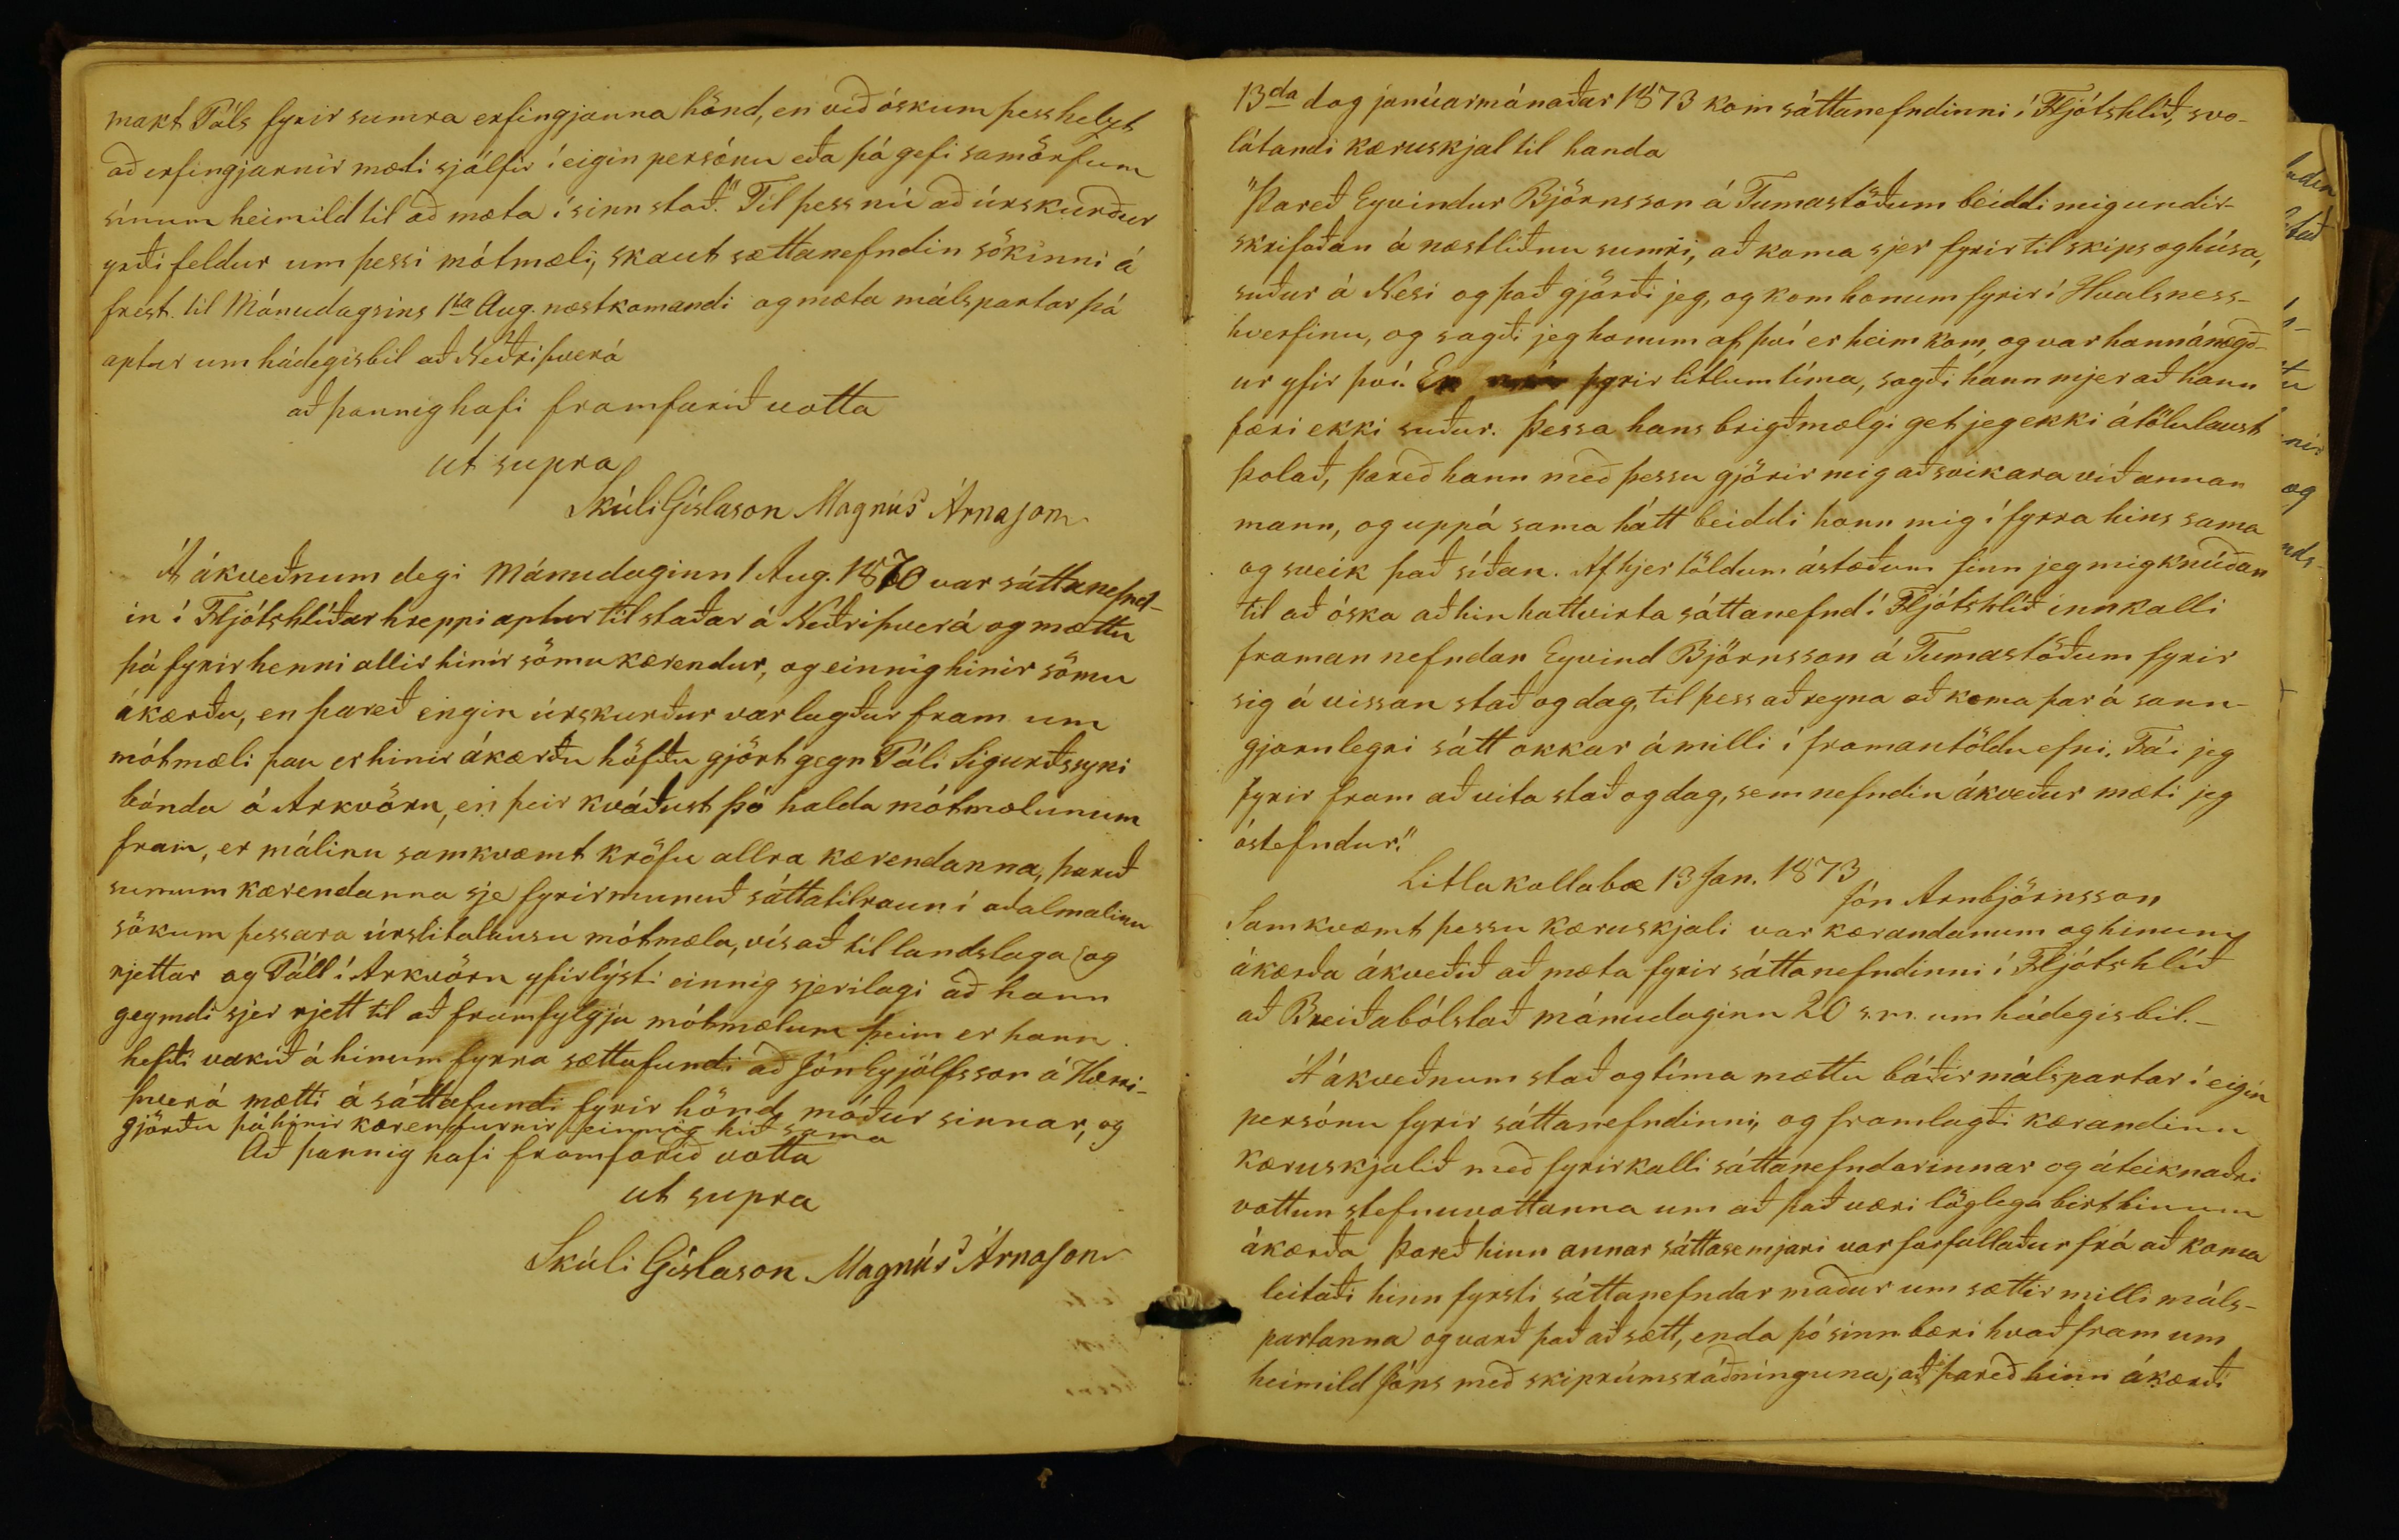 makt Páls fyrir sumra erfingjanna hönd, en við óskum þess helzt
að erfingjarnir mæti sjálfir í eigin persónu eða þá gefi samörfum
sínum heimild til að mæta í sinn stað." Til þess nú að úrskurður
yrði feldur um þessi mótmæli, skaut sættanefndin sökinni á
frest til Mánudagsins 1ta Aug. næstkomandi og mæta málspartar þá
aptur um hádegisbil að Neðriþverá
að þannig hafi framfarið votta
ut supra
Skúli Gíslason Magnús Árnason
Á ákveðnum degi Mánudaginn 1 Aug. 1870 var sáttanefnd-
in í Fljótshlíðar hreppi aptur til staðar á Neðriþverá og mættu
þá fyrir henni allir hinir sömu kærendur, og einnig hinir sömu
ákærðu, en þareð engin úrskurður var lagður fram um
mótmæli þau er hinir ákærðu höfðu gjört gegn Páli Sigurðssyni
bónda á Arkvörn, en þeir kváðust þó halda mótmælunum
fram, er málinu samkvæmt kröfu allra kærendanna, þareð
sumum kærendanna sje fyrirmunuð sáttatilraun í aðalmalinu
sökum þessara úrslitalausu mótmæla, vísað til landslaga og
rjettar og Páll í Arkvörn yfirlýsti einnig sjerilagi að hann
geymdi sjer rjett til að framfylgja mótmælum þeim er hann
hefði vakið á hinum fyrra sættafundi að Jón Eyjólfsson á Hærri-
þverá mætti á sáttafundi fyrir hönd móður sinnar, og
gjörðu þá hinir kærendurnir einnig hið sama
Að þannig hafi framfarið votta
ut supra
Skúli Gíslason Magnús Árnason
13da dag janúarmánaðar 1873 kom sáttanefndinni í Fljótshlíð, svo-
látandi kæruskjal til handa
"Þareð Eyvindur Björnsson á Tumastöðum beiddi mig undir-
skrifaðan á næstliðnu sumri, að koma sjer fyrir til skips og húsa,
suður á Nesi og það gjörði jeg, og kom honum fyrir í Hvalsness-
hverfinu, og sagði jeg honum af því er heim kom, og var hann ánægð-
ur yfir því. En fyrir litlum tíma, sagði hann mjer að hann
færi ekki suður. Þessa hans brigðmælgi get jeg ekki átölulaust
þolað, þareð hann með þessu gjörir mig að svikara við annan
mann, og uppá sama hátt beiddi hann mig í fyrra hins sama
og sveik það síðan. Af hjer töldum ástæðum finn jeg mig knúðan
til að óska að hin háttvirta sáttanefnd í Fljótshlíð innkalli
framan nefndan Eyvind Björnsson á Tumastöðum fyrir
sig á vissan stað og dag, til þess að reyna að koma þar á sann-
gjarnlegri sátt okkar á milli í framantöldu efni. Fái jeg
fyrir fram að vita stað og dag, sem nefndin ákveður mæti jeg
óstefndur."
Litlakollabæ 13 Jan. 1873
Jón Arnbjörnsson
Samkvæmt þessu kæruskjali var kærandanum og hinum
ákærða ákveðið að mæta fyrir sáttanefndinni í Fljótshlíð
að Breiðabólstað mánudaginn 20 s.m. um hádegisbil.-
Á ákveðnum stað og tíma mættu báðir málspartar í eigin
persónu fyrir sáttanefndinni, og framlagði kærandinn
kæruskjalið með fyrirkalli sáttanefndarinnar og áteiknaðri
vottun stefnuvottanna um að það væri löglega birt hinum
ákærða Þareð hinn annar sáttasemjari var forfallaður frá að koma
leitaði hinn fyrsti sáttanefndar maður um sættir milli máls-
partanna og varð það að sætt, enda þó sinn bæri hvað fram um
heimild Jóns með skiprúmsráðninguna, að þareð hinn ákærði